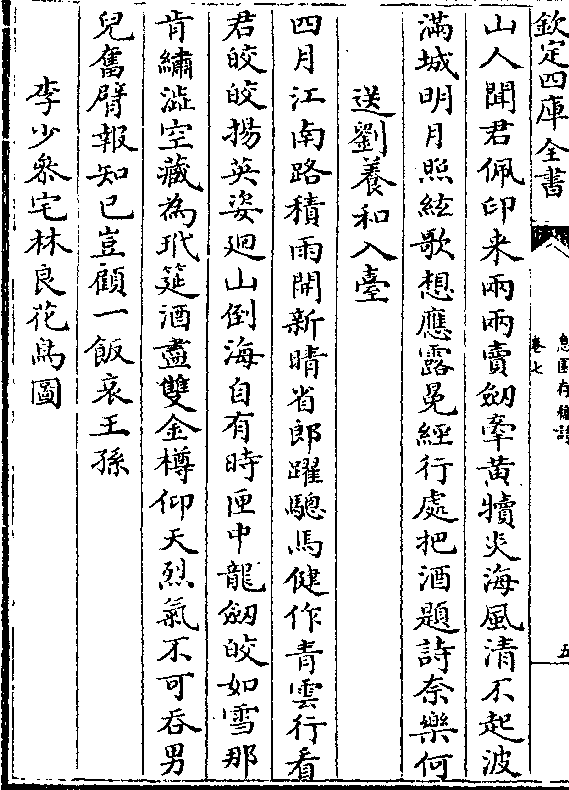 欽定四庫全書
卷七
山人聞君佩印来兩兩賣劒牽黄犢炎海風清不起波
滿城明月照絃歌想應露冕經行處把酒題詩奈樂何
送劉養和入臺
四月江南路積雨開新晴省郎躍驄馬健作青雲行看
君皎皎揚英姿廻山倒海自有時匣中龍劒皎如雪那
肯繡澁空藏為玳筵酒盡雙金樽仰天烈氣不可吞男
兒奮臂報知已豈顧一飯哀王孫
李少叅宅林良花鳥圖